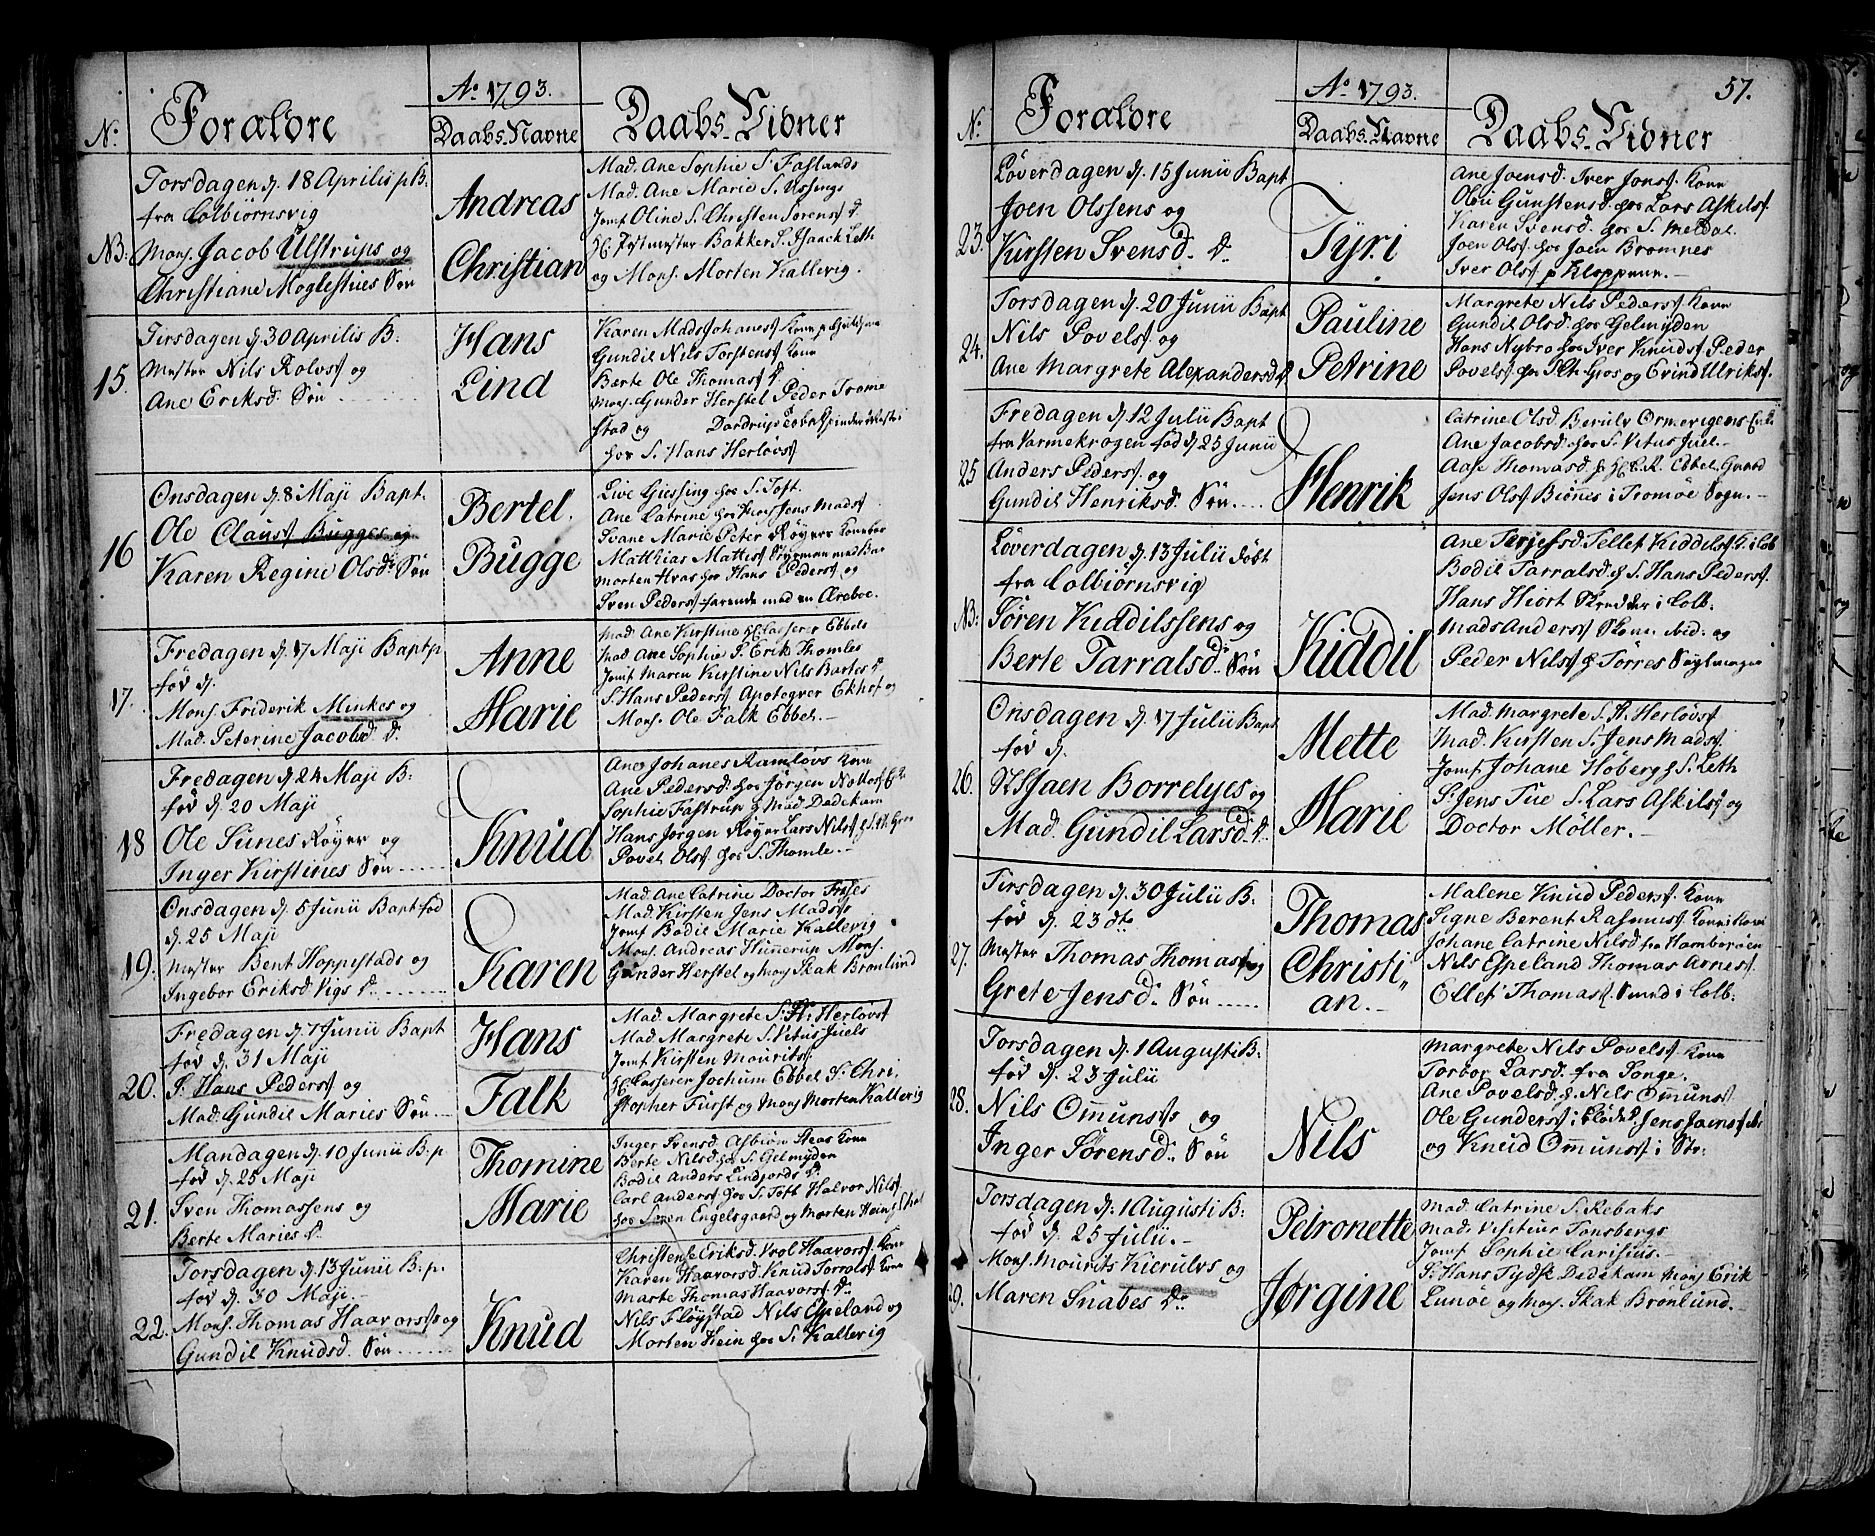 Ao 1793.
No
Forældre
Daabs-Navne
Daabs-Vidner
Torsdagen d. 18 Aprilis p B.
fra Colbiørnsvig
NB. Mons. Jacob Ulstrups og
Christiane Moglestues Søn
Andreas
Christian
Mad. Ane Sophie S. Faslands
Mad. Ane Marie S. Ussings
Jomf Oline S. Christen Sørens D.
Postmester Bakker S. Isaack Leth
og Mons. Morten Kallevig.
Tirsdagen d. 30 Aprilis B.
15. Mester Nils Rolvs og
Ane Eriksd. Søn
Hans
Lind
Karen Mads Johanes Kone p
Gundil Nils Torstens Kone
Berte Ole Thomas D
Mons. Gunder Herstel Peder Trome
stad og
hos S. Hans Herlövs
Onsdagen d. 8 Maji Bapt.
16 Ole Claus Bugges og
Karen Regine Olsd. Søn
Bertel.
Bugge
Live Giessing hos S. Toft.
Ane Catrine hos Jens Mads
Svane Marie Peter Røyers Kone
Matthias Mattes Styrmand med
Morten Hvas hos Hans Peders og
Sven Peders farende med en Æreboe.
Fredagen d. 17 Maji Bapt p
fød d.
17. Mons. Friderik Minkes og
Mad. Peterine Jacobsd. D.
Anne
Marie
Mad. Ane Kirstine Casserer Ebbels
Mad Ane Sophie S. Erik Thomles
Jomf Maren Kirstine Nils Bartes D
S. Hans Peders Apoteqver og
Mons. Ole Falk Ebbel.
Fredagen d. 24 Maji B.
fød d. 20 Maji
18 Ole Sunes Røyer og
Inger Kirstines Søn
Knud
Ane Johanes Ramløvs Kone
Ane Pedersd. hos Jørgen
Sophie Fastrup Mad Dedekam
Hans Jørgen Røyer Lars Nils
Povel Ols hos S. Thomle.
Onsdagen d. 5 Junii Bapt fød
d. 25 Maji
19. Mester Bent Hoppestads og
Ingebor Eriksd Vigs D.
Karen
Mad. Ane Catrine Doctor
Mad. Kirsten Jens Mads
Jomf Bodil Marie Kallevig
Mons. Andreas Hunnerup Mons.
Gunder Herstel og Mons Skak Brønlund
Fredagen d. 7 Junii Bapt
fød d. 31 Maji
20. S. Hans Peders og
Mad. Gundil Maries Søn
Hans
Falk
Mad. Margrete S. H. Herlövs
Mad. Margrete S. Vitus Juels
Jomf Kirsten Mourits
Casserer Jochum Ebbel S. Chri
stopher Furst og Mons Morten Kallevig
Mandagen d. 10 Junii B. p
fød d. 25 Maji
21. Sven Thomassens og
Berte Maries D
Thomine
Marie
Inger Svensd Asbiøn Kone
Berte Nilsd hos S. Gelmyden
Bodil Anders Lindjords D.
Carl Anders hos S. Toft Halvor Nils
hos Søren Engelsgaard og Morten
Torsdagen d. 13 Junii B. p.
fød d. 30 Maji.
22. Mons. Thomas Haavors og
Gundil Knudsd. Søn
Knud
Christense Eriksd Wrol Haavors Kone
Karen Haavorsd Knud Torrals Kone
Marte Thomas Haavors D
Nils Fløystad Nils Espeland og
Morten Hein hos S. Kallevig
Ao 1793.
57.
No
Forældre
Daabs-Navne
Daabs-Vidner
Løverdagen d. 15 Junii Bapt
23. Joen Olssens og
Kirsten Svensd. D
Tyri
Ane Joensd. Iver Jons Kone
Olen Gunstensd. hos Lars Askils
Karen Svensd. hos S. Meldal
Joen Ols hos Joen Bromnes
Iver Ols p Kloppene.
Torsdagen d. 20 Junii Bapt
24. Nils Povels og
Ane Margrete Alexandersd D.
Pauline
Petrine
Margrete Nils Peders Kone
Gundil Olsd hos Gelmyden
Hans Nybro hos Iver Knuds Peder
Povels hos og Evind Ulriks.
Fredagen d. 12 Julii Bapt
fra Varmekrogen fød d. 25 Junii
25 Anders Peders og
Gundil Henriksd. Søn.
Henrik
Catrine Olsd Berulv Ormevigens
Ane Jacobsd hos S. Vitus Juel
Aase Thomasd Ebbel Gund
Jens Ols Biønes i Tromøe Sogn.
Løverdagen d. 13 Julii døbt
fra Colbiørnsvig
NB: Søren Kiddilssens og
Berte Tarralsd. Søn
Kiddil
Ane Terjesd Tellef Kiddils K. i Colb
Bodil Tarralsd S. Hans Peders
Hans Hiort Skredder i Colb:
Mads Anders og
Peder Nils Torres
Onsdagen d. 17 Julii Bapt
fød d.
26. Staen Borrelyes og
Mad. Gundil Larsd. D
Mette
Marie
Mad. Margrete S. H. Herlövs
Mad. Kirsten S. Jens Mads
Jomf Johane Høberg S. Leth
S. Jens Tue S. Lars Askils og
Doctor Møller.
Tirsdagen d. 30 Julii B.
fød d. 23 dto
27. Mester Thomas Thomas og
Grete Jensd. Søn
Thomas
Christi
an.
Malene Knud Peders Kone
Signe Berent Rasmus Kone
Johane Catrine Nilsd fra Hamborøen
Nils Espeland Thomas Arnes
Ellef Thomas Smed i Colb:
Torsdagen d. 1 Augusti B:
fød d. 23 Julii
28. Nils Omuns og
Inger Sørensd. Søn
Nils
Margrete Nils Povels Kone
Torbor Larsd. fra Songe.
Ane Povelsd Nils Omuns
Ole Gunders i Jens
og Knud Omuns i
Torsdagen d. 1 Augusti B:
fød d. 25 Julii.
29. Mons. Mourits Kierulvs og
Maren Snabes D
Petronette
Jørgine
Mad. Catrine S. Rebaks
Mad. Tønsbergs
Jomf Sophie Carisius.
S. Hans Tyds Dedekam Mons Erik
Lunøe og Mons. Skak Brønlund.